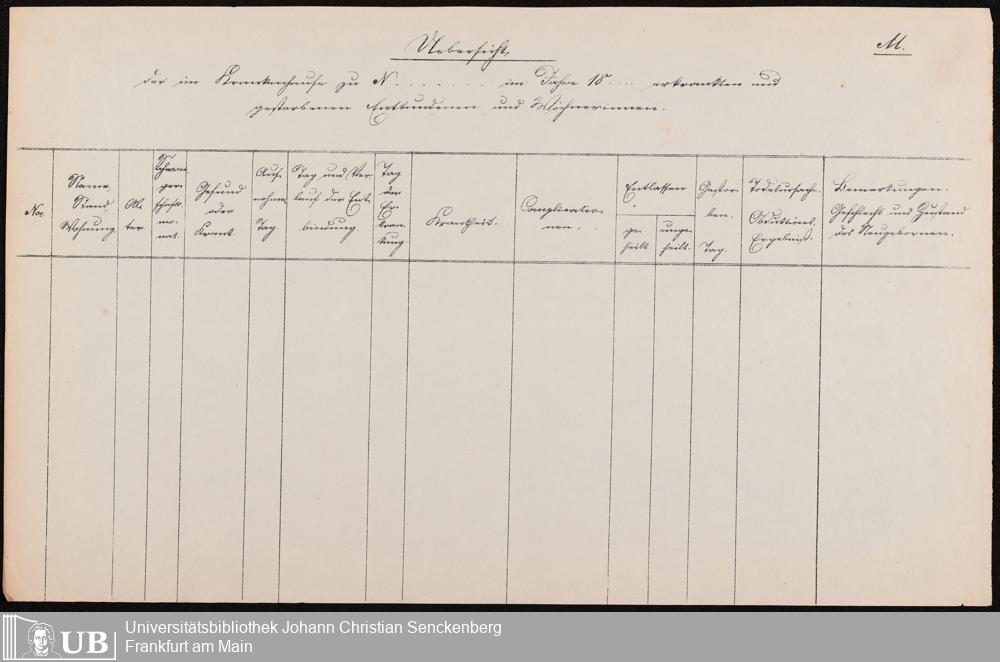 Uebersicht,
M.
der im Krankenhause zu N. . . . . . . . im Jahre 18 . . . . erkrankten und
gestorbenen Entbundenen und Wöchnerinnen.
Nro.
Name,
Stand,
Wohnung.
Al-
ter.
Schwan-
ger-
schafts-
mo-
nat.
Gesund
oder
Krank.
Auf-
nahme
Tag
Tag und Ver-
lauf der Ent-
bindung.
Tag
der
Er-
kran-
kung
Krankheit.
Complicatio-
nen.
Entlassen
ge-
heilt
unge-
heilt.
Gestor-
ben.
Tag.
Todesursache.
Obduktions-
Ergebniß.
Bemerkungen.
Geschlecht und Zustand
des Neugebornen.
UB
Universitätsbibliothek Johann Christian Senckenberg
Frankfurt am Main